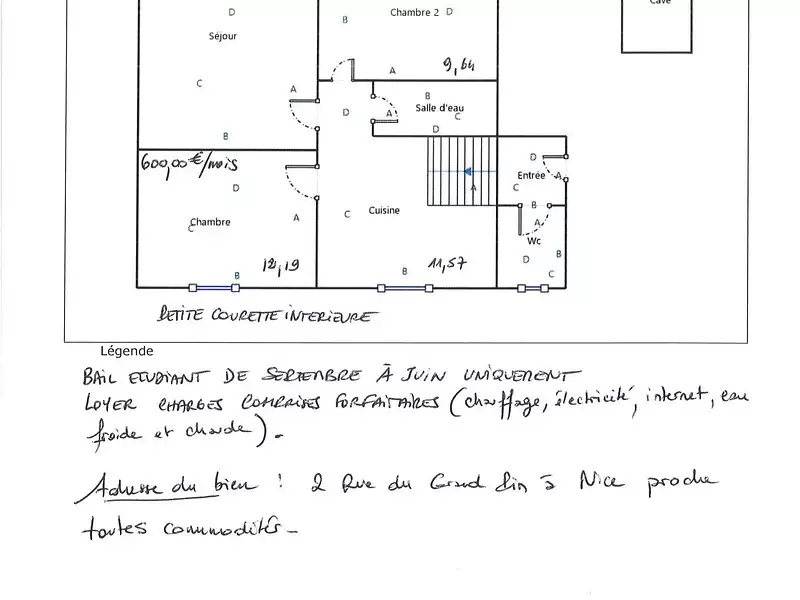 Cave
D
Chambre 2 D
B
Séjour
A
9,64
C
A
B
Salle d'eau
D
A
C
B
D
600,00 €/mois
D
Entrée
A
D
A
C
Chambre
C
A
C
Cuisine
B
A
Wc
12,19
11,57
D
B
B
B
C
PETITE COURETTE INTERIEURE
Légende
BAIL ETUDIANT DE SEPTEMBRE À JUIN UNIQUEMENT
LOYER CHARGES COMPRISES FORFAITAIRES (chauffage, électricité, internet, eau
froide et chaude).
Adresse du bien : 2 Rue du Grand Pin à Nice proche
toutes commodités_